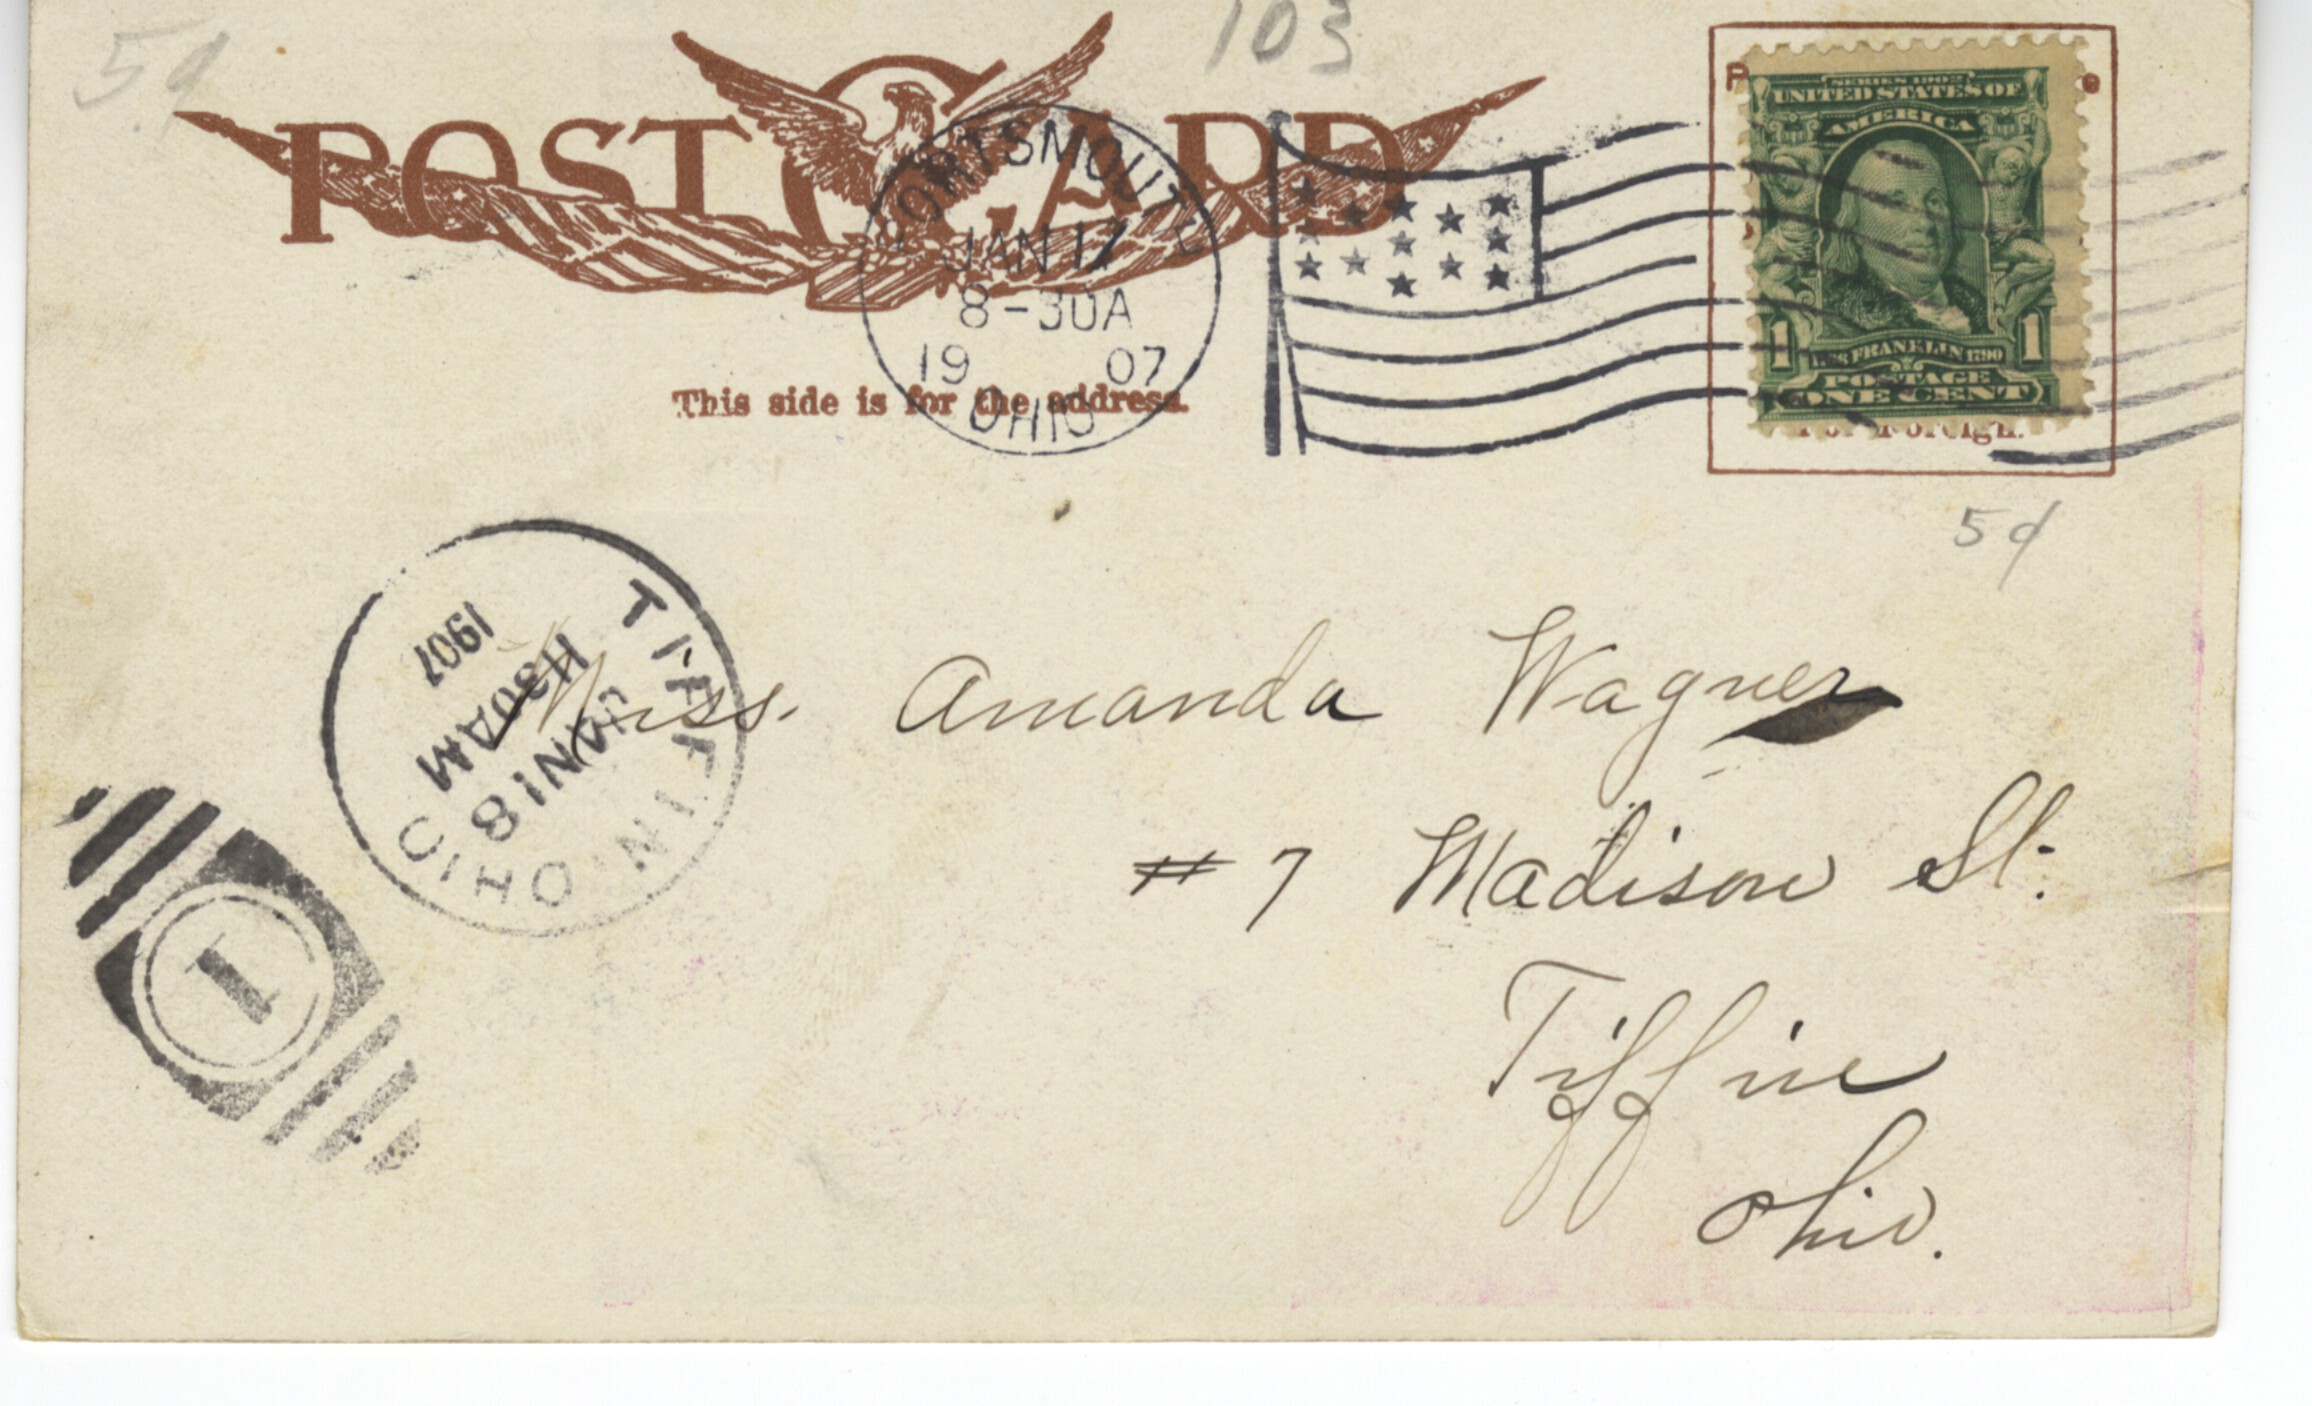 5¢
103
POST CARD
PORTSMOUTH
JAN 17
8-30A
19 07
OHIO
This side is for the address.
SERIES 1902
UNITED STATES OF
AMERICA
1 FRANKLIN 1790 1
POSTAGE
ONE CENT
For Foreign.
5¢
TIFFIN. OHIO
JAN 18
1130AM
1907
1
Miss. Amanda Wagner
# 7 Madison St.
Tiffin
Ohio.